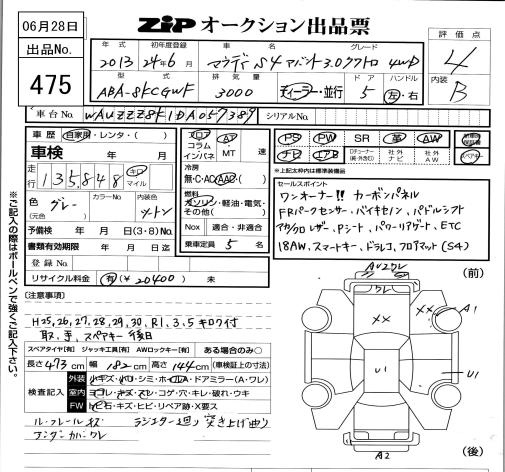 06月28日
ZIP オークション出品票
出品No.
475
年式 初年度登録 車名 グレード
2013 24年6月 アウディ S4 アバント 3.0クワトロ 4WD
型式 排気量 ドア ハンドル
ABA-8KCGWF 3000 ディーラー・並行 5 左・右
評価点
4
内装
B
車台No. WAUZZZ8K1DA057389
シリアルNo.
車歴 自家用・レンタ・( )
車検 年 月
走行 135,848 キロ マイル
色 グレー
(元色)
カラーNo.
内装色
予備検 年 月 日(3・8)No.
書類有効期限 年 月 日
登録No.
リサイクル料金 有(¥20400)未
フロア コラム インパネ AT・MT 速
冷房
無・C・AC・AAC
燃料
ガソリン・軽油・電気・その他( )
Nox 適合・非適合
乗車定員 5 名
PS PW SR 革 AW
ナビ エアB 社外ナビ 社外AW
※上記太枠内は標準装備品
セールスポイント
ワンオーナー!! カーボンパネル
FRパークセンサー・バイキセノン、パドルシフト
レザー、Pシート、パワーリアゲート、ETC
18AW、スマートキー、ドラレコ、フロアマット(S4)
※ご記入の際はボールペンで強くご記入下さい。
[注意事項]
H25,26,27,28,29,30,R1,3,5キロク付
取、書、スペアキー後日
スペアタイヤ[有] ジャッキ工具[有] AWロックキー[有] ある場合のみ○
長さ 473 cm 幅 182 cm 高さ 144 cm (車検証上の寸法)
検査記入
外装 小キズ・小凹・シミ・ホイルA・ドアミラー(A・ワレ)
室内 ヨゴレ・キズ・スレ・コゲ・穴・キレ・破れ・ウキ
FW トビ石・キズ・ヒビ・リペア跡・X要ス
ラジエター廻り突き上げ曲り
アンダーカバーワレ
(前)
(後)
AU2ワレ
ワレ
XX
XX
A1
U1
U1
A2